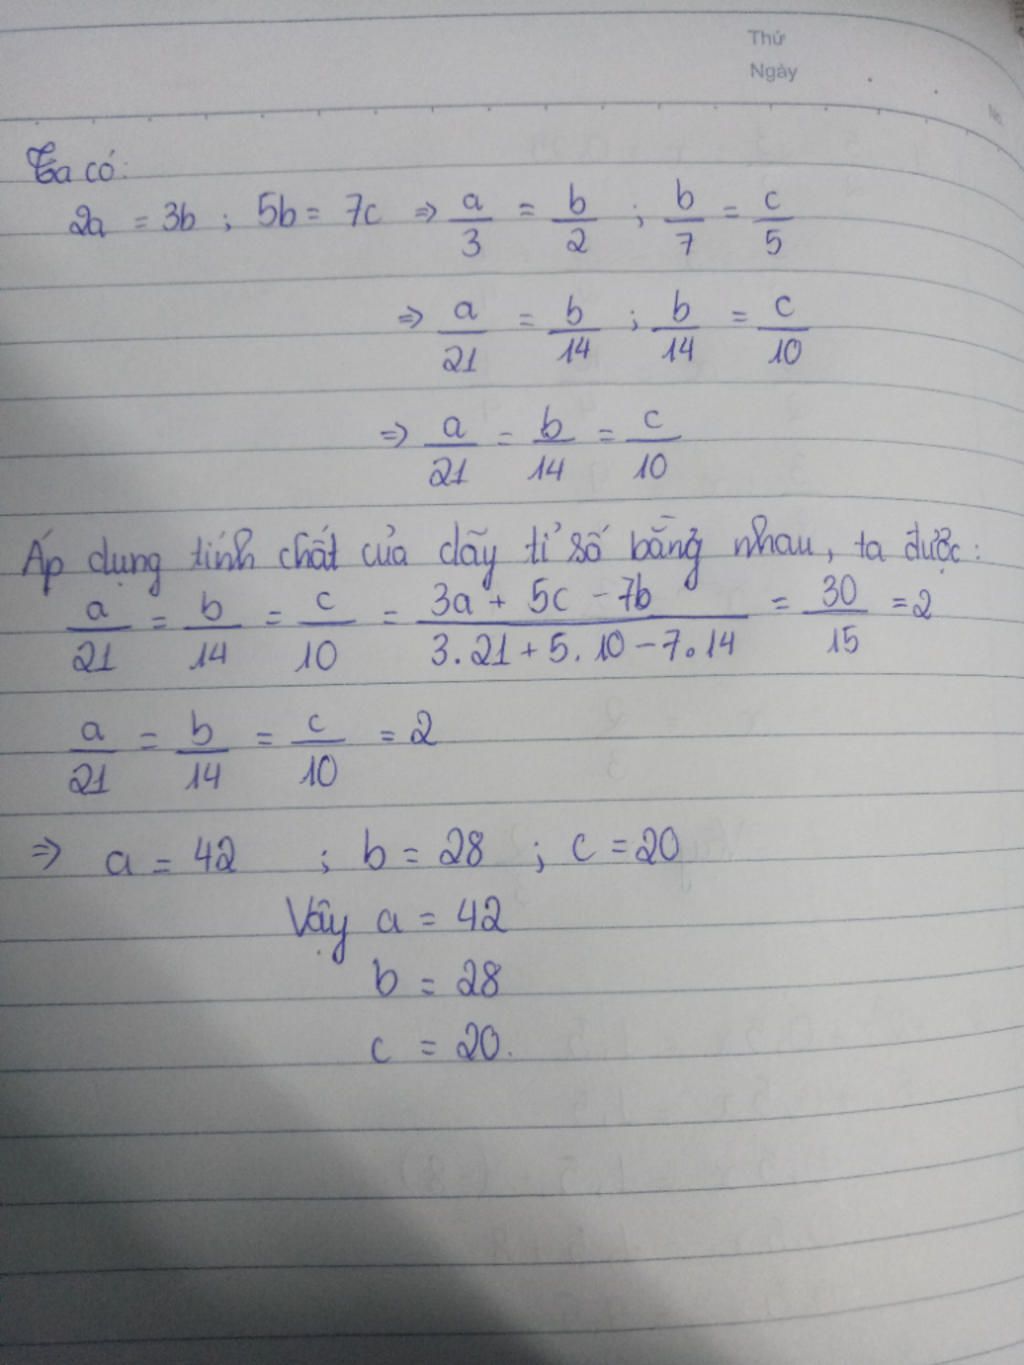 Thứ
Ngày
No.
Ta có:
2a = 3b ; 5b = 7c ⇒ a/3 = b/2 ; b/7 = c/5
⇒ a/21 = b/14 ; b/14 = c/10
⇒ a/21 = b/14 = c/10
Áp dụng tính chất của dãy tỉ số bằng nhau, ta được:
a/21 = b/14 = c/10 = (3a + 5c - 7b)/(3.21 + 5.10 - 7.14) = 30/15 = 2
a/21 = b/14 = c/10 = 2
⇒ a = 42 ; b = 28 ; c = 20
Vậy a = 42
b = 28
c = 20.